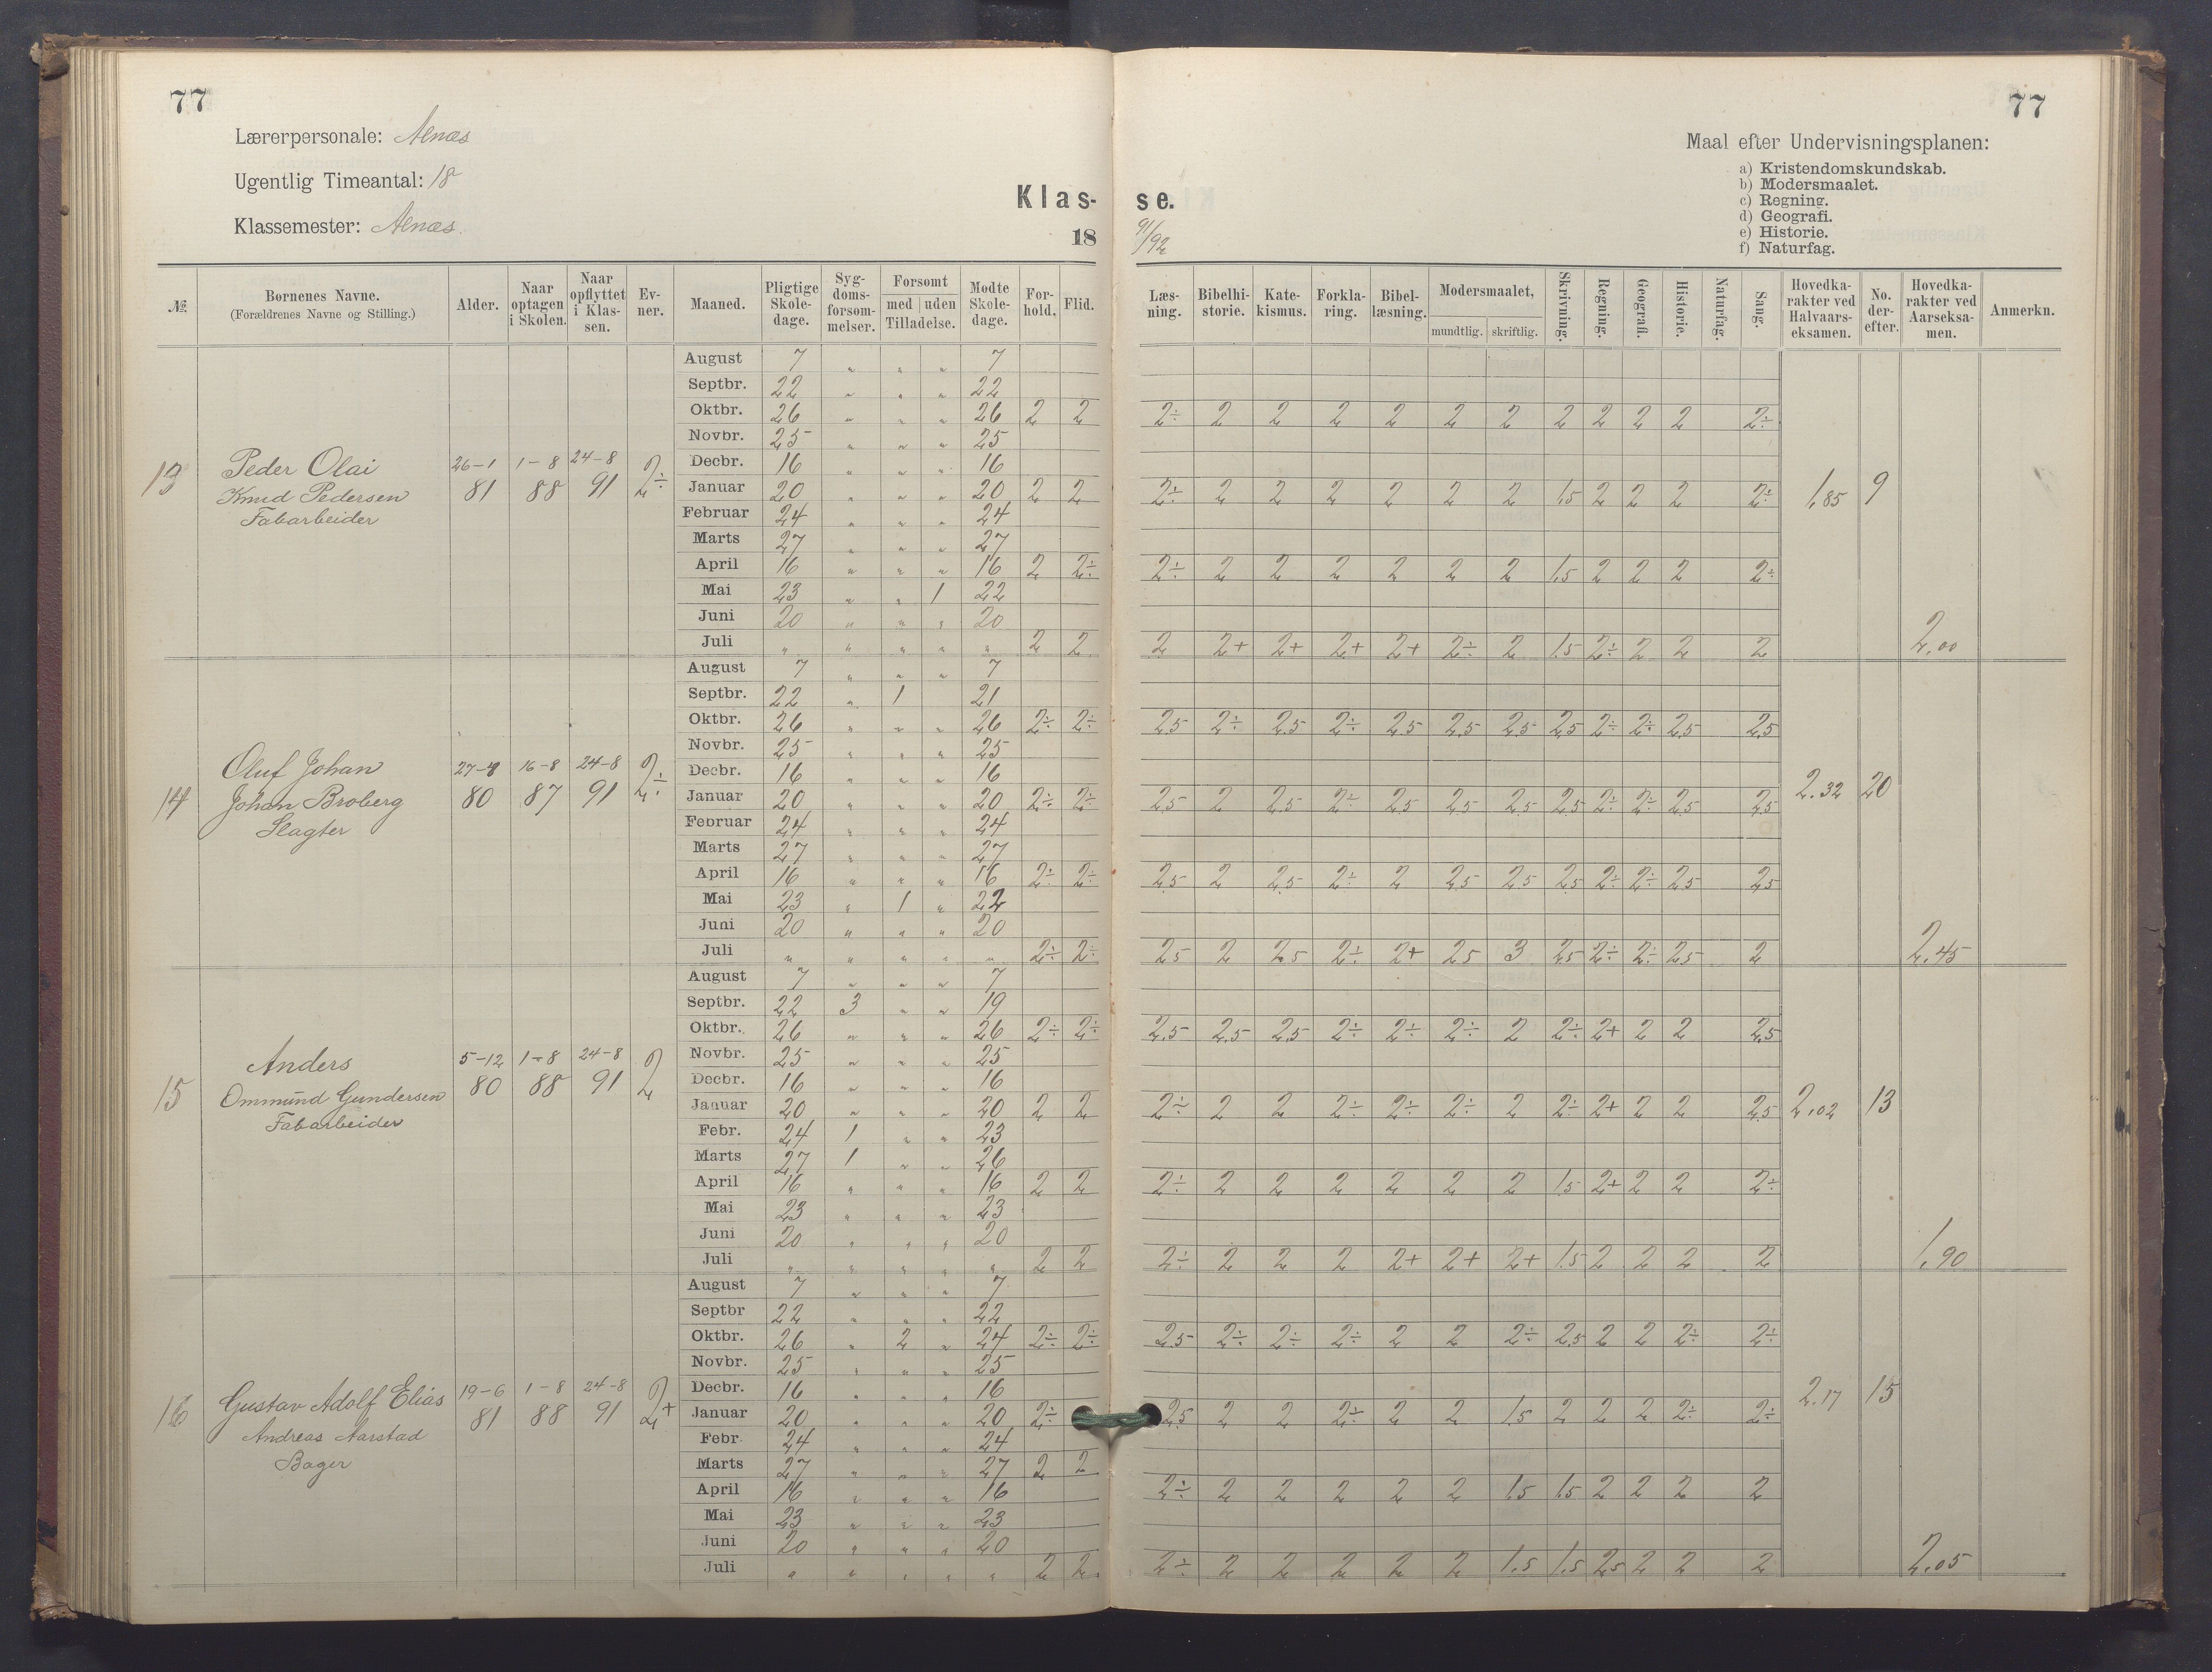 77
77
Lærerpersonale: Aenæs
Ugentlig Timeantal: 18
Klassemester: Aenæs.
Klas- se.
18 91/92
Maal efter Undervisningsplanen:
a) Kristendomskundskab.
b) Modersmaalet.
c) Regning.
d) Geografi.
e) Historie.
f) Naturfag.
№ Børnenes Navne. (Forældrenes Navne og Stilling.) Alder. Naar optagen i Skolen. Naar opflyttet i Klassen. Evner. Maaned. Pligtige Skoledage. Sygdomsforsømmelser. Forsømt med uden Tilladelse. Mødte Skoledage. Forhold. Flid. Læsning. Bibelhistorie. Katekismus. Forklaring. Bibellæsning. Modersmaalet, mundtlig. skriftlig. Skrivning. Regning. Geografi. Historie. Naturfag. Sang. Hovedkarakter ved Halvaarseksamen. No. derefter. Hovedkarakter ved Aarseksamen. Anmerkn.
13 Peder Olai
Knud Pedersen
Fabarbeider
26-1 81 1-8 88 24-8 91 2÷
August 7 „ „ „ 7
Septbr. 22 „ „ „ 22
Oktbr. 26 „ „ „ 26 2 2 2÷ 2 2 2 2 2 2 2 2 2 2 2÷
Novbr. 25 „ „ „ 25
Decbr. 16 „ „ „ 16
Januar 20 „ „ „ 20 2 2 2÷ 2 2 2 2 2 2 1.5 2 2 2 2÷ 1,85 9
Februar 24 „ „ „ 24
Marts 27 „ „ „ 27
April 16 „ „ „ 16 2 2÷ 2÷ 2 2 2 2 2 2 1.5 2 2 2 2÷
Mai 23 „ „ 1 22
Juni 20 „ „ „ 20
Juli „ „ „ „ „ 2 2 2 2+ 2+ 2+ 2+ 2÷ 2 1.5 2÷ 2 2 2 2,00
14 Oluf Johan
Johan Broberg
Slagter
27-4 80 16-8 87 24-8 91 2÷
August 7 „ „ „ 7
Septbr. 22 „ 1 21
Oktbr. 26 „ „ „ 26 2÷ 2÷ 2.5 2÷ 2.5 2÷ 2.5 2.5 2.5 2.5 2÷ 2÷ 2.5 2.5
Novbr. 25 „ „ „ 25
Decbr. 16 „ „ „ 16
Januar 20 „ „ „ 20 2÷ 2÷ 2.5 2 2.5 2÷ 2.5 2.5 2.5 2.5 2÷ 2÷ 2.5 2.5 2.32 20
Februar 24 „ „ „ 24
Marts 27 „ „ „ 27
April 16 „ „ „ 16 2÷ 2÷ 2.5 2 2.5 2÷ 2 2.5 2.5 2.5 2÷ 2÷ 2.5 2.5
Mai 23 „ 1 „ 22
Juni 20 „ „ „ 20
Juli „ „ „ „ „ 2÷ 2÷ 2.5 2 2.5 2÷ 2+ 2.5 3 2.5 2÷ 2÷ 2.5 2 2,45
15 Anders
Ommund Gundersen
Fabarbeider
5-12 80 1-8 88 24-8 91 2
August 7 „ „ „ 7
Septbr. 22 3 „ „ 19
Oktbr. 26 „ „ „ 26 2÷ 2÷ 2.5 2.5 2.5 2÷ 2÷ 2÷ 2 2÷ 2+ 2 2 2.5
Novbr. 25 „ „ „ 25
Decbr. 16 „ „ „ 16
Januar 20 „ „ „ 20 2 2 2÷ 2 2 2÷ 2÷ 2÷ 2 2÷ 2+ 2 2 2.5 2,02 13
Febr. 24 1 „ „ 23
Marts 27 1 „ „ 26
April 16 „ „ „ 16 2 2 2÷ 2 2 2 2 2 2 1.5 2+ 2 2 2÷
Mai 23 „ „ „ 23
Juni 20 „ „ „ 20
Juli „ „ „ „ „ 2 2 2÷ 2 2 2 2+ 2+ 2+ 1.5 2 2 2 2 1,90
16 Gustav Adolf Elias
Andreas Aarstad
Bager
19-6 81 1-8 88 24-8 91 2+
August 7 „ „ „ 7
Septbr 22 „ „ „ 22
Oktbr. 26 „ 2 „ 24 2÷ 2÷ 2.5 2÷ 2÷ 2÷ 2 2 2÷ 2.5 2 2 2÷ 2÷
Novbr. 25 „ „ „ 25
Decbr. 16 „ „ „ 16
Januar 20 „ „ „ 20 2÷ 2.5 2 2 2÷ 2 2 1.5 2 2 2 2÷ 2÷ 2.17 15
Febr 24 „ „ „ 24
Marts 27 „ „ „ 27 2 2
April 16 „ „ „ 16 2÷ 2 2 2 2 2 1.5 1.5 2 2 2 2
Mai 23 „ „ „ 23
Juni 20 „ „ „ 20
Juli „ „ „ „ „ 2 2 2÷ 2 2 2 2 2 1.5 1.5 2.5 2 2 2 2,05